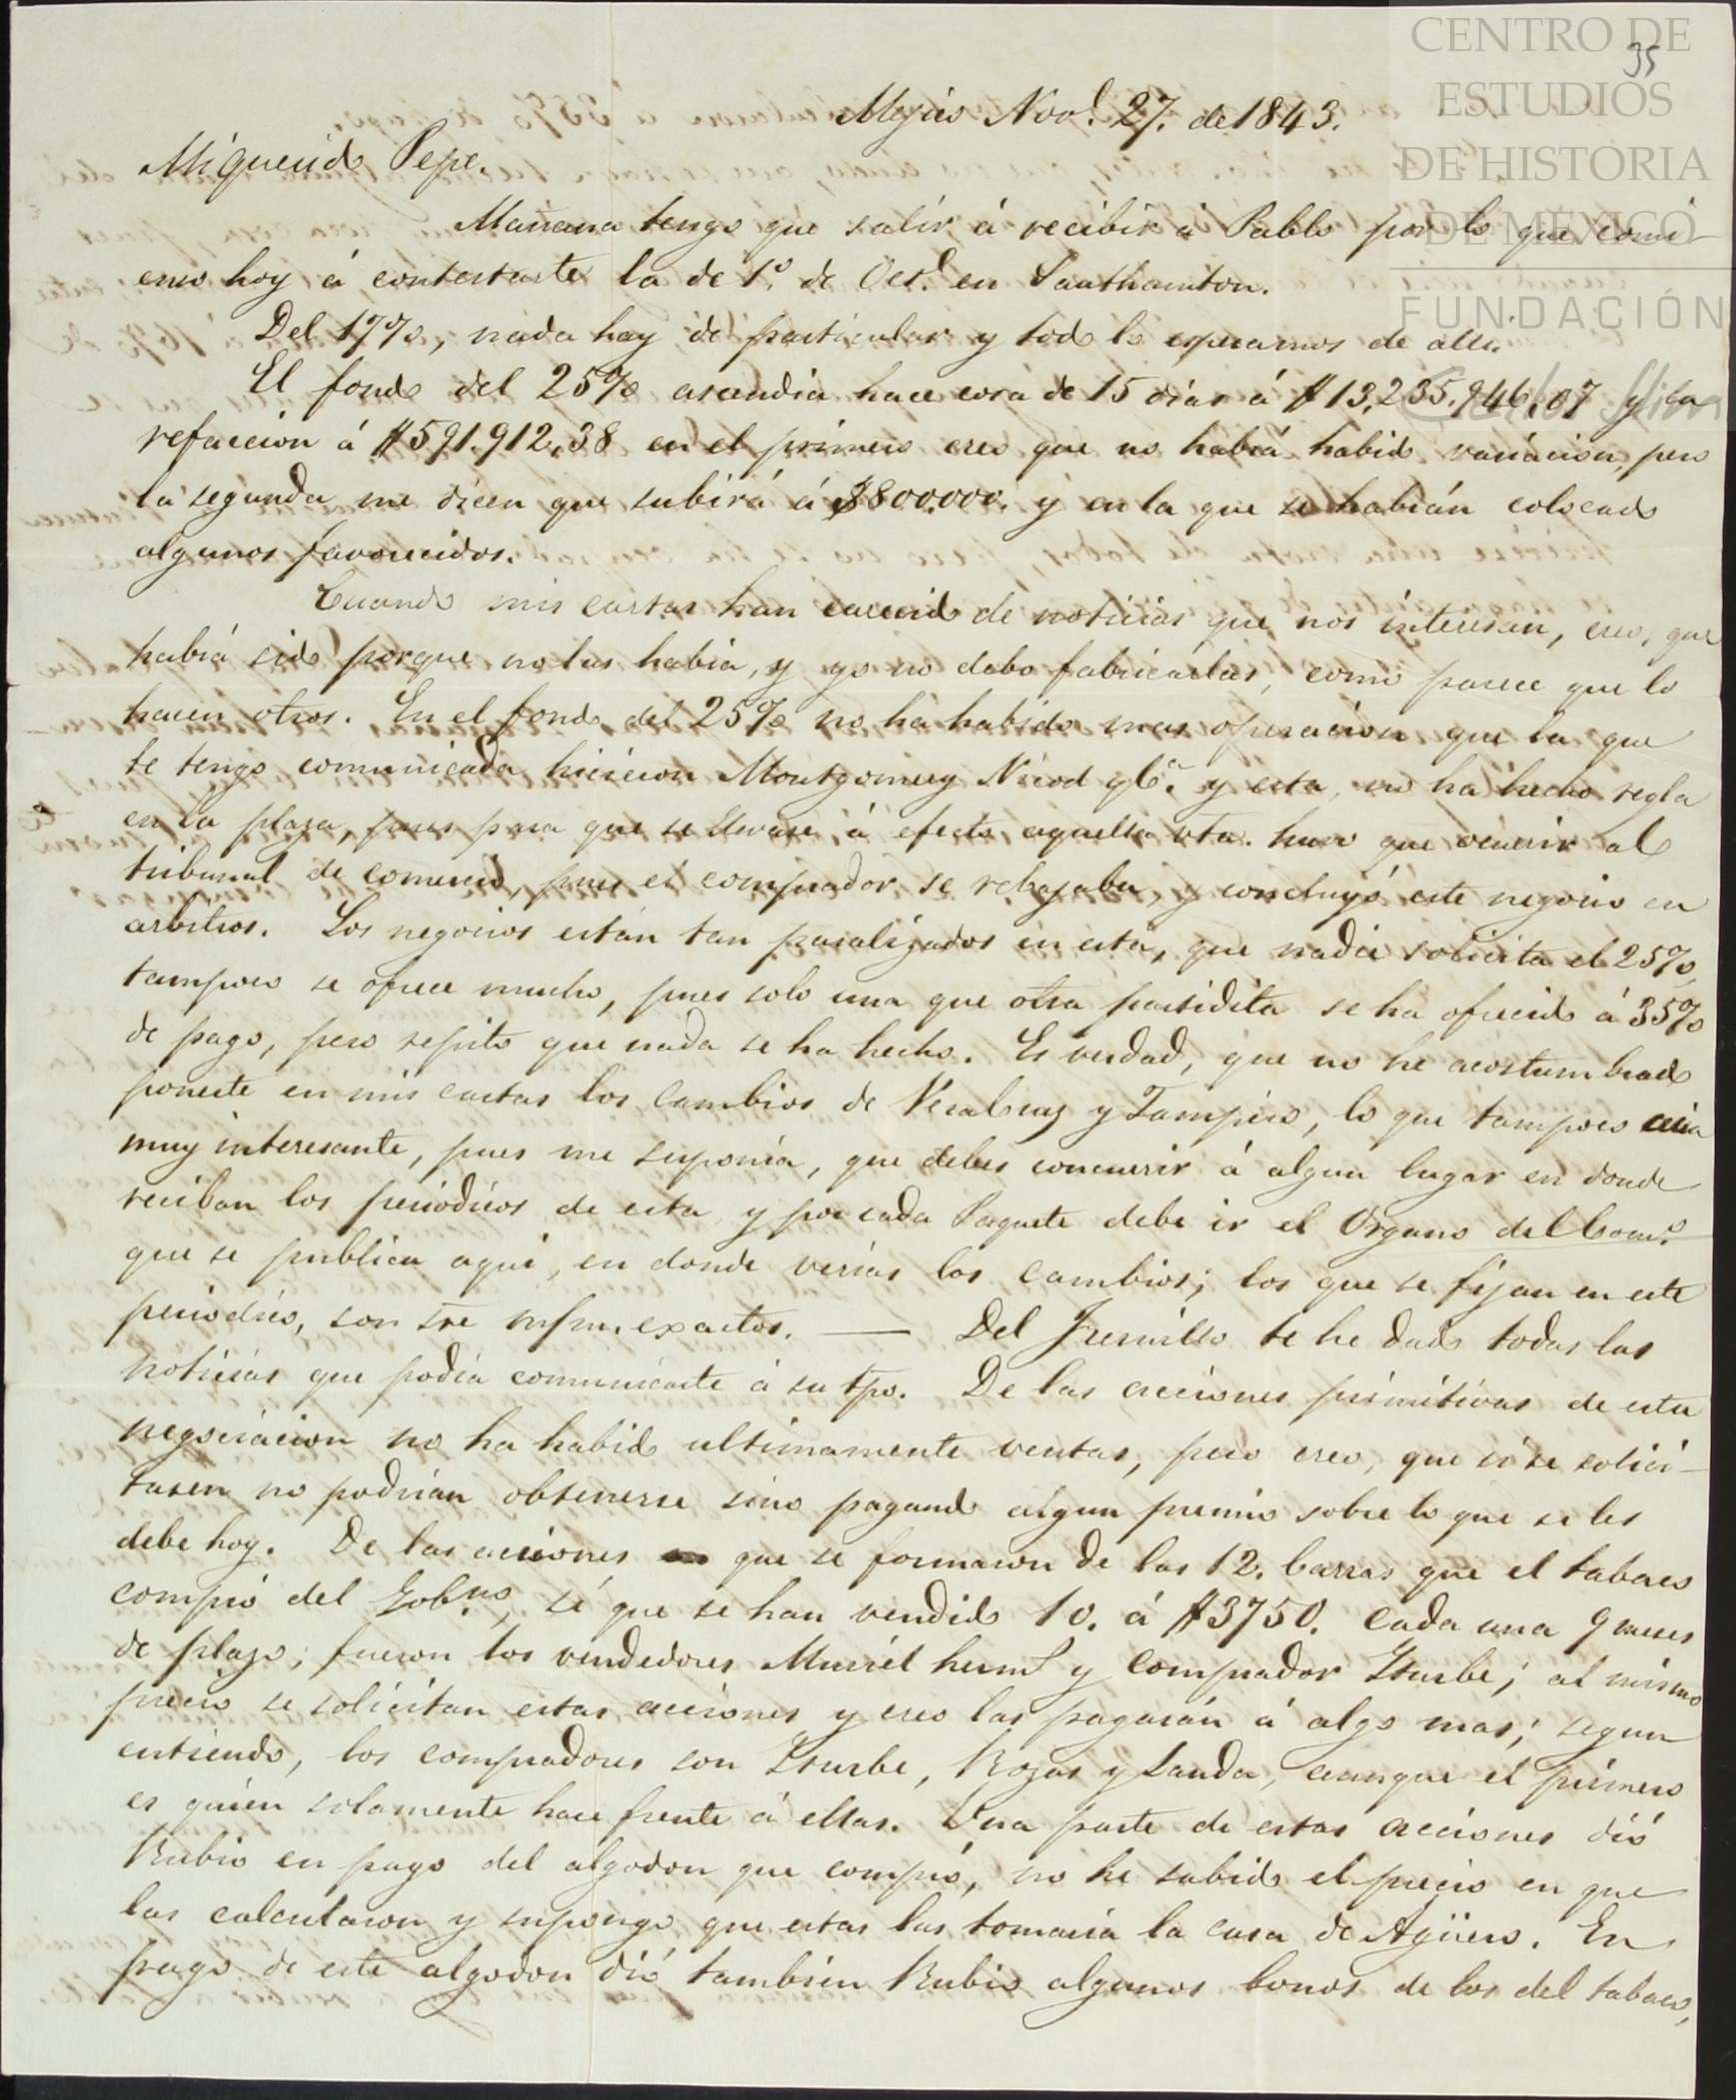 CENTRO DE
ESTUDIOS
DE HISTORIA
DE MEXICO
FUNDACIÓN
Carlos Slim
35
Mejico Nov.e 27. de 1843.
Mi querido Pepe.
Mañana tengo que salir á recibir á Pablo por lo que comi-
enso hoy á contestarte la de 1.o de Oct.e en Southamton.
Del 17%, nada hay de particular y todo lo esperamos de alli.
El fondo del 25% asendia hace cosa de 15 dias á $13,235.946,07 y la
refaccion á $591.912,38 en el primero creo que no habrá habido variacion, pero
la segunda me dicen que subirá á $800.000. y en la que se habián colocado
algunos favorecidos.
Cuando mis cartas han carecido de noticias que nos interesan, creo, que
habrá sido porque no las habia, y yo no debo fabricarlas, como parece que lo
hacen otros. En el fondo del 25% no ha habido mas operacion que la que
te tengo comunicada hicieron Montgomery Nicod y C.a y esta no ha hecho regla
en la plaza, pues para que se llevase á efecto aquella vta. hubo que ocurrir al
tribunal de comercio, pues el comprador se rebajaba, y concluyó este negocio en
arbitros. Los negocios están tan paralizados en esta, que nadie solicita el 25%,
tampoco se ofrece mucho, pues solo una que otra partidita se ha ofrecido á 35%
de pago, pero repito que nada se ha hecho. Es verdad, que no he acostumbrado
ponerte en mis cartas los cambios de VeraCruz y Tampico, lo que tampoco seria
muy interesante, pues me suponia, que debes concurrir á algun lugar en donde
reciban los periodicos de esta y por cada Paquete debe ir el Organo del Com.o
que se publica aqui, en donde verias los cambios; los que se fijan en este
periodico, son sre exactos. — Del Fresnillo te he dado todas las
noticias que podia comunicarte á su tpo. De las acciones primitivas de esta
negociacion no ha habido ultimamente ventas, pero creo, que si se solici-
tasen no podrian obtenerse sino pagando algun premio sobre lo que se les
debe hoy. De las acciones que se formaron de las 12. barras que el tabaco
compró del Gob.no, sé que se han vendido 10. á $3750. cada una 9 meses
de plazo; fueron los vendedores Muriel herm.s y comprador Iturbe; al mismo
precio se solicitan estas acciones y creo las pagarán á algo mas; segun
entiendo, los compradores son Iturbe, Rozas y Landa, aunque el primero
es quien solamente hace frente á ellas. Una parte de estas acciones dió
Rubio en pago del algodon que compró, no he sabido el precio en que
las calcularon y supongo que estas las tomaria la casa de Agüero. En
pago de este algodon dió tambien Rubio algunos bonos de los del tabaco,